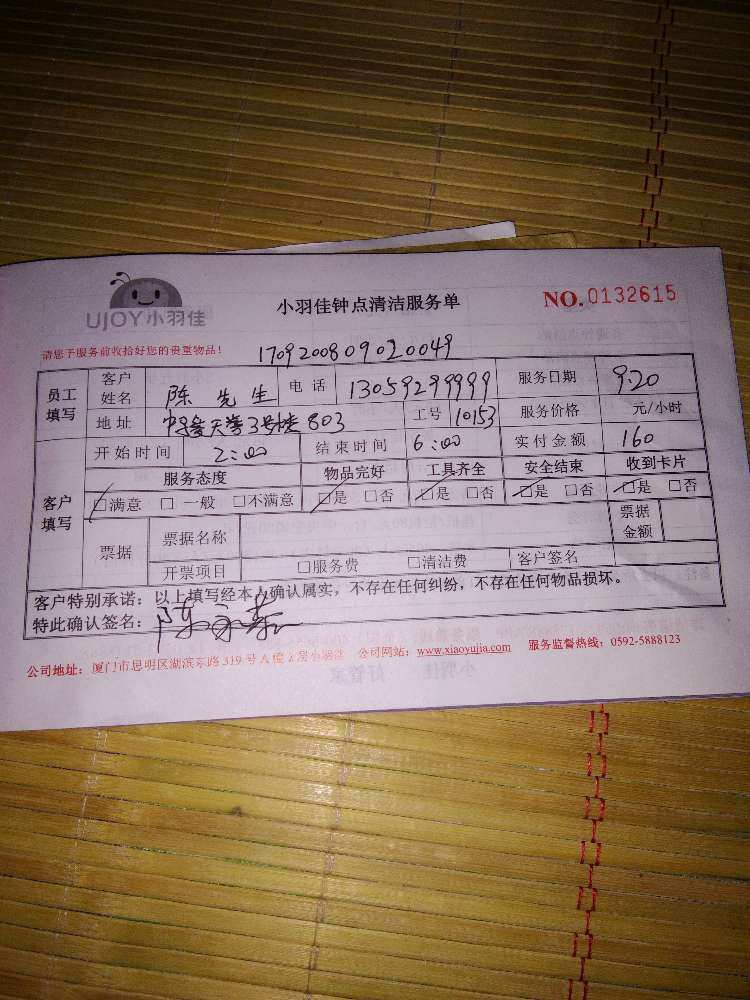 UJOY小羽佳
小羽佳钟点清洁服务单
NO.0132615
请您于服务前收拾好您的贵重物品！
1709200809020049
员工填写 客户姓名 陈先生 电话 13059299999 服务日期 9.20
地址 天誉3号楼803 工号 10153 服务价格 元/小时
客户填写 开始时间 2:00 结束时间 6:00 实付金额 160
服务态度 物品完好 工具齐全 安全结束 收到卡片
☑满意 □一般 □不满意 ☑是 □否 ☑是 □否 ☑是 □否 ☑是 □否
票据 票据名称 票据金额
开票项目 □服务费 □清洁费 客户签名
客户特别承诺：以上填写经本人确认属实，不存在任何纠纷，不存在任何物品损坏。
特此确认签名：陈
公司地址：厦门市思明区湖滨东路319号A幢2层小羽佳 公司网站：www.xiaoyujia.com 服务监督热线：0592-5888123